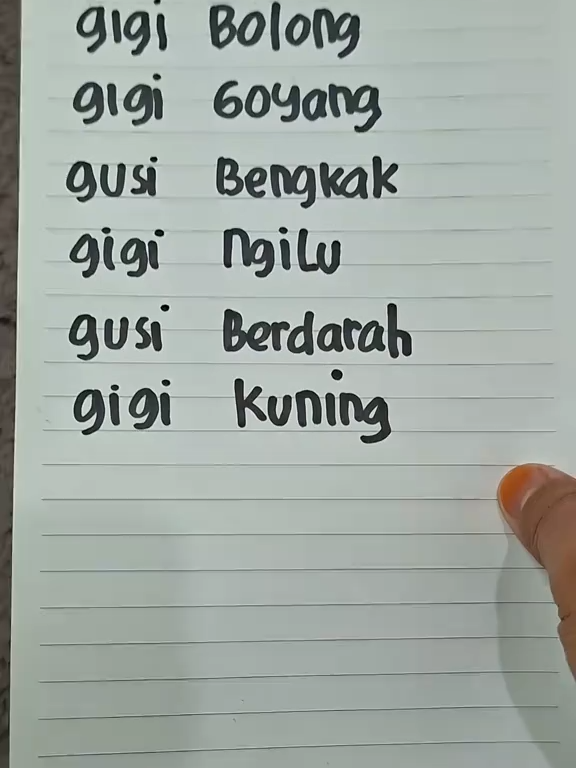 gigi Bolong
gigi Goyang
gusi Bengkak
gigi Ngilu
gusi Berdarah
gigi Kuning